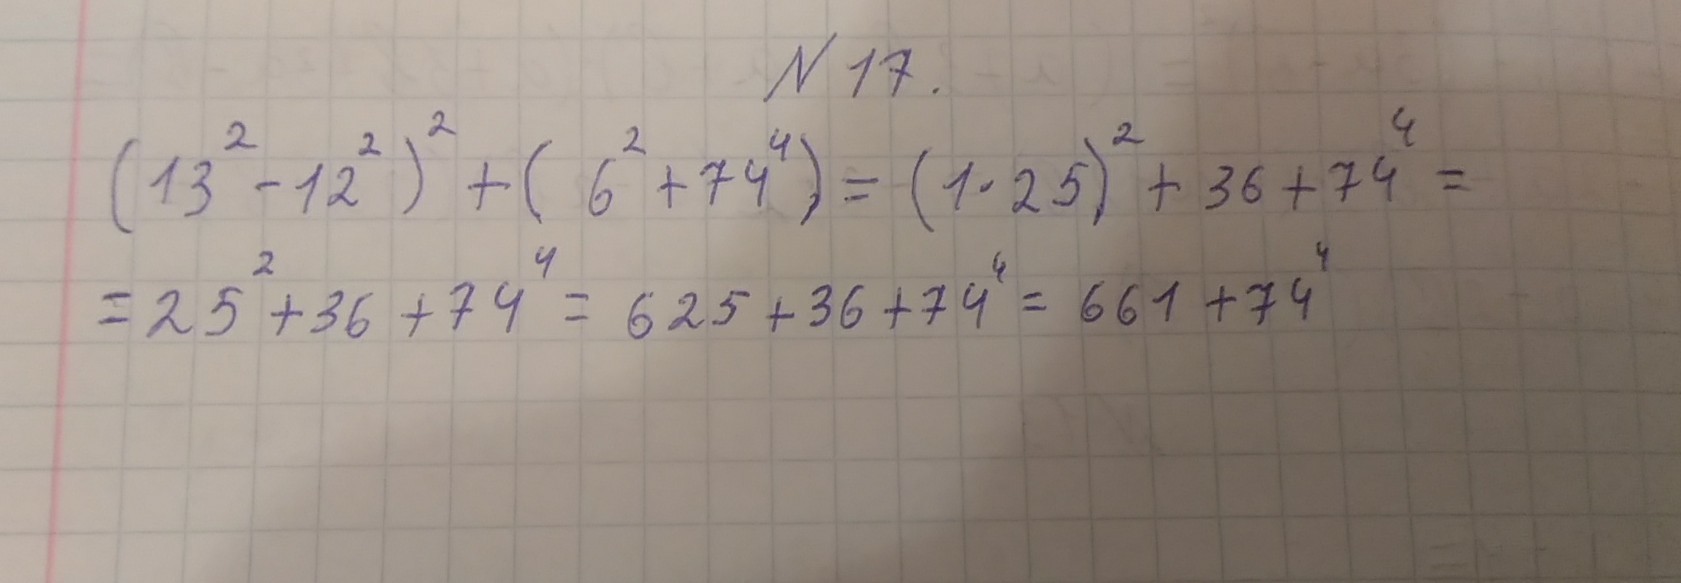 N 17.
(13² - 12²)² + (6² + 74⁴) = (1 · 25)² + 36 + 74⁴ =
= 25² + 36 + 74⁴ = 625 + 36 + 74⁴ = 661 + 74⁴